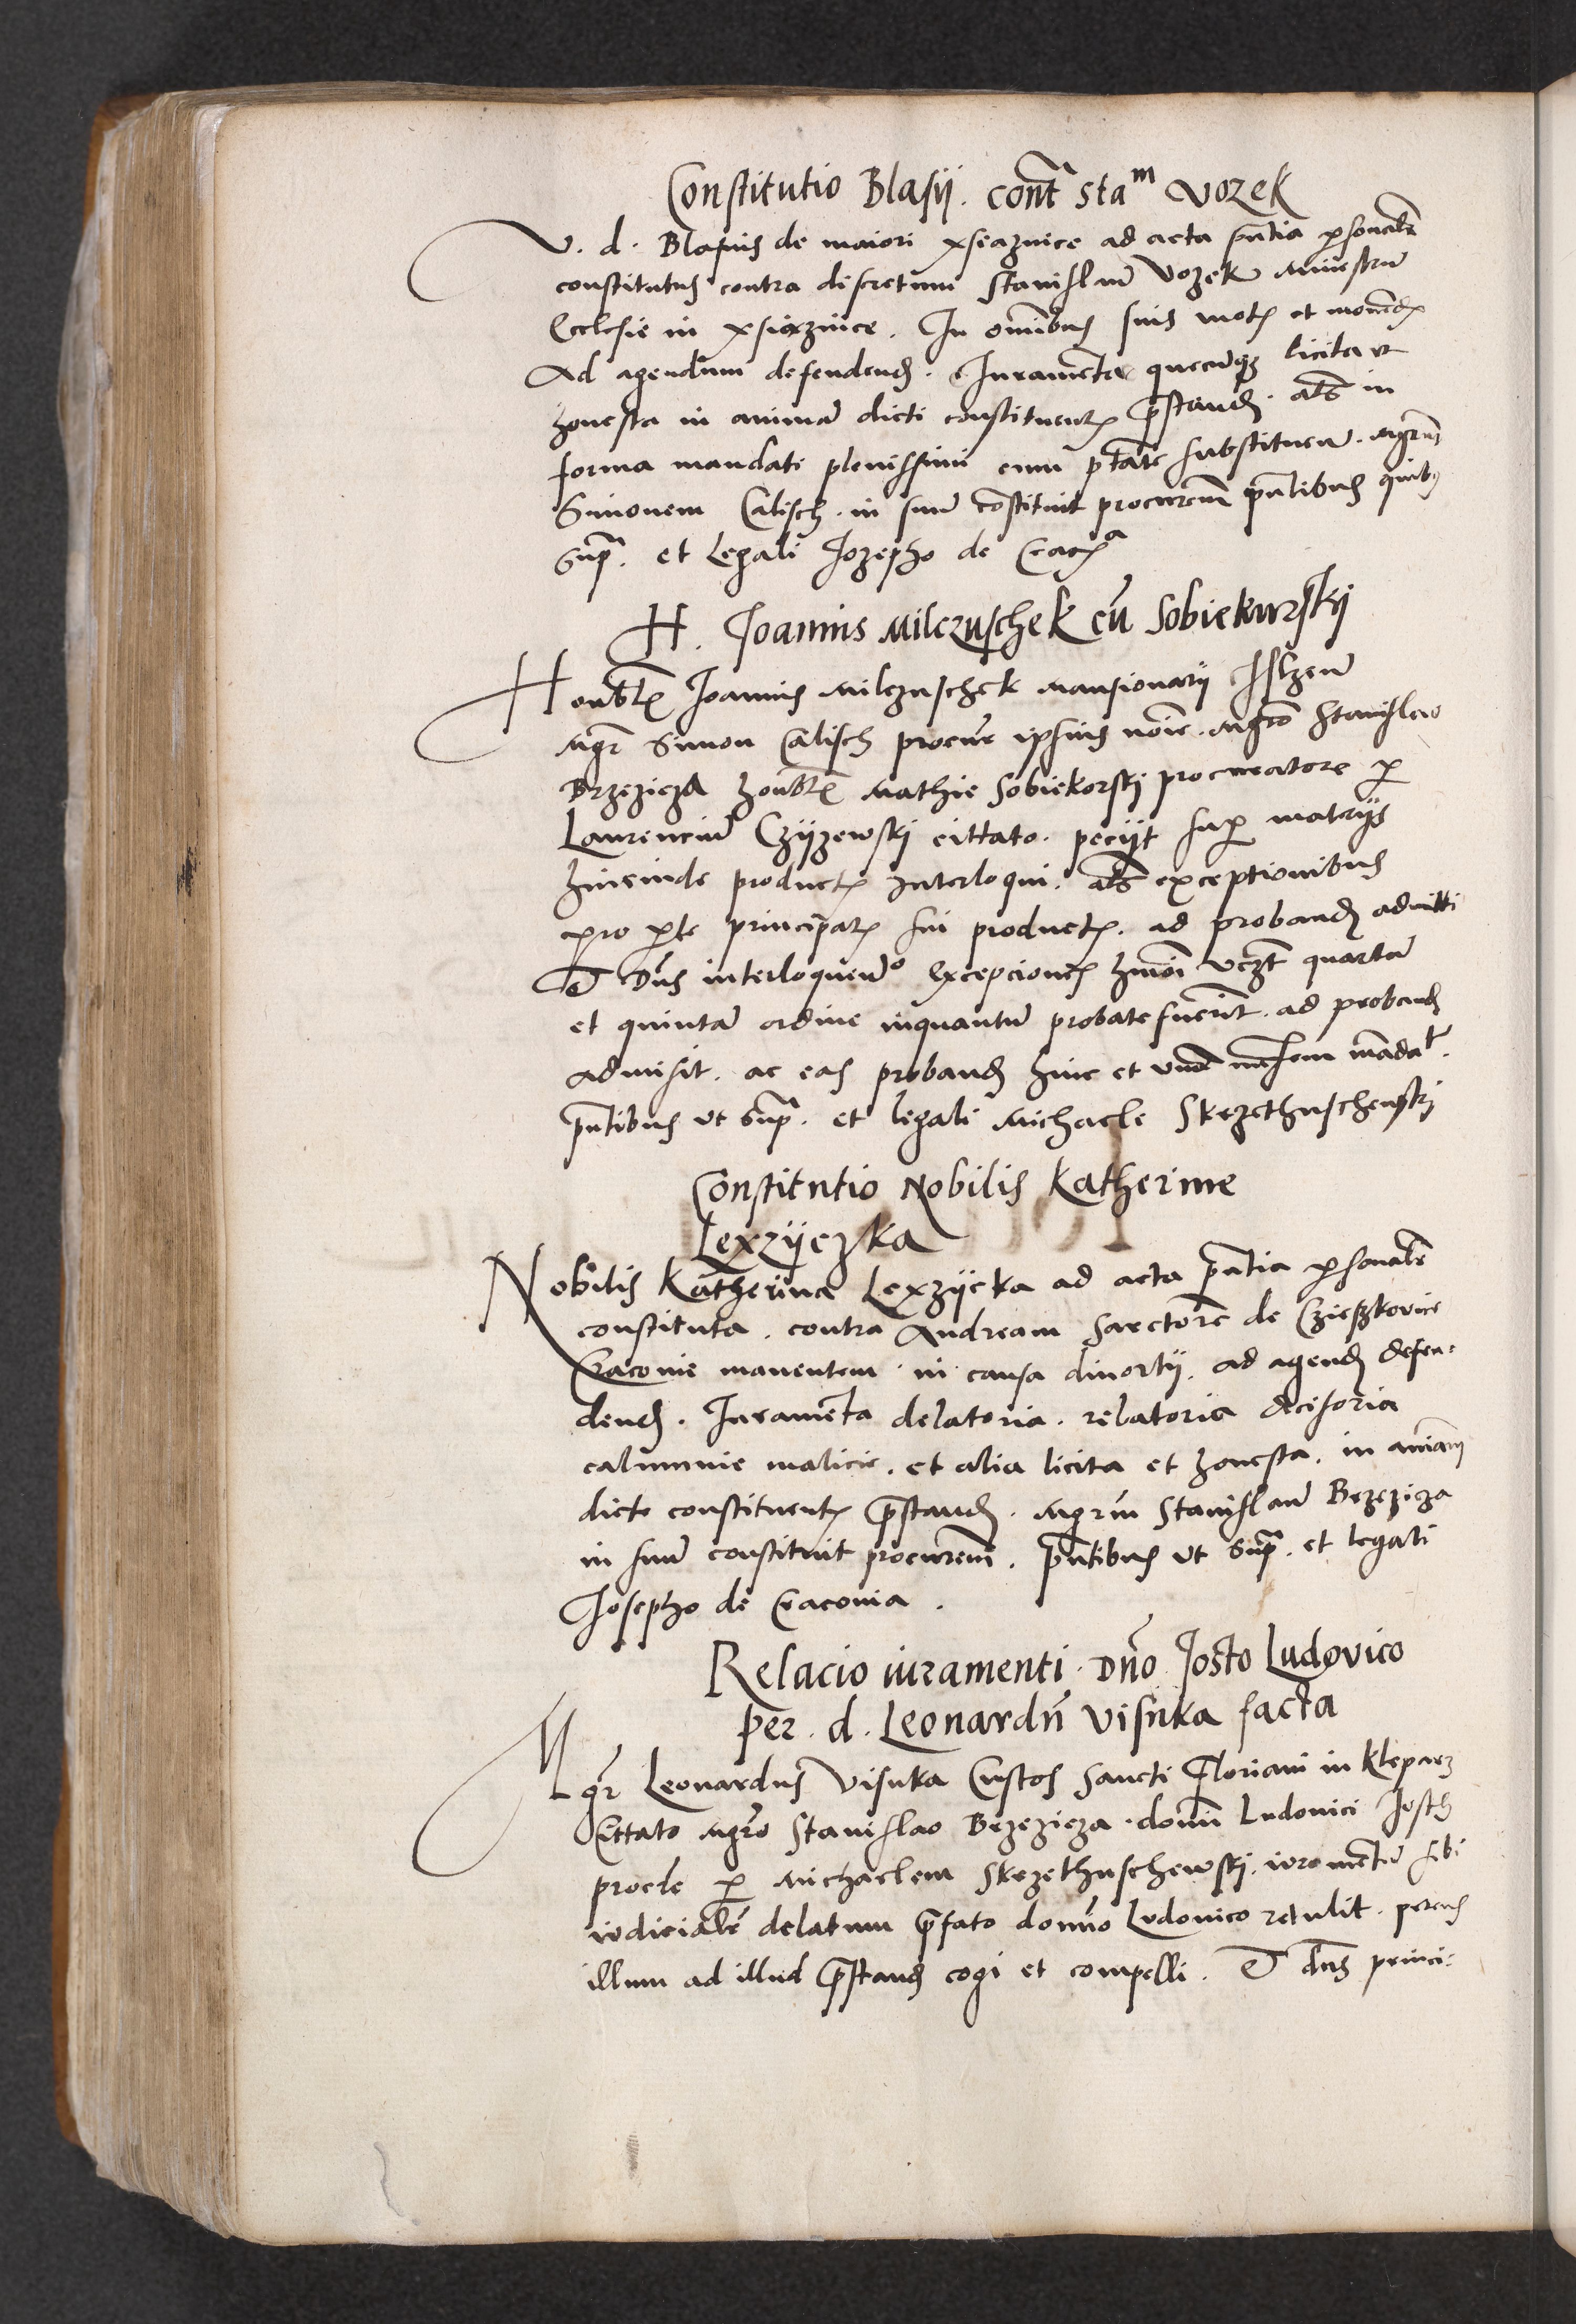 Constitutio Blasij. cont͂ Staᵐ Vozek
V. d. Blasius de maiori xsiaznice ad acta pn̄tia ꝑsonalr̄
constitutus contra discretum Stanislaū Vozek Ministrū
Ecclesie in xsiaznice. In om̄ibus suis motꝭ et mouendꝭ
Ad agendum defendendꝭ. Iuramenta quecūqꝫ licita et
honesta in animā dicti constituentꝭ p̄standꝭ. als̄ in
forma mandati plenissimi cum ptāte substituendꝭ. Mgr̄m
Simonem Calisch. in suū cōstituit procurem̄ pn̄tibus quibꝰ
supᵃ. et Legali Jozepho de Cracꝭᵃ
H. Joannis Milczuschek cū Sobiekurskij
Honblꝭ Joannis Milczuschek Mansionarij Ilzen̄
Mgr̄ Simon Calisch procur̄ ipsius noīe. Mgr̄o Stanislao
Brzezicza honblꝭ Mathie Sobiekorskj procuratore ꝑ
Laurencium Czyzewskj cittato. pecijt suꝑ materijs
hincinde productꝭ interloqui. als̄ exceptionibus
pro ꝑte principalꝭ sui productꝭ. ad probandꝭ admitti
Et Dn̄s interloquendᵒ Excepciones hm̄oi vꝫt quartā
et quintā ordine inquantū probate fuerint. ad probandꝭ
admisit. ac eas probandꝭ hinc et vnū mensem mādaᵗ.
pn̄tibus vt supᵃ. et legali Michaele Skrzethuschewskj
Constitutio Nobilis Katherine
Lexzijczka
Nobilis Katherina Lexzijcka ad acta pn̄tia ꝑsonalr̄
constituta. contra Andream Sarctorē de Czieszkovice
Cracovie manentem. in causa diuortij. ad agendꝭ defen-
dendꝭ. Iuramenta delatoria. relatoria decisoria
calumnie malicie. et alia licita et honesta. in animam
dicte constituentꝭ p̄standꝭ. Mgr̄m Stanislaū Brzezicza
in suū constituit procurem̄. pn̄tibus vt supᵃ. et legali
Josepho de Cracovia.
Relacio iuramenti. Dn̄o Josto Ludovico
per. d. Leonardū Visnka facta
Mgr̄ Leonardus Visnka Custos Sancti Floriani in Kleparz
Cittato Mgr̄o Stanislao Brzezicza. domī Ludouici Josth
procle ꝑ Michaelem Skrzethuschewskj. iuramentū sibi
iudicialr̄ delatum p̄fato domīo Ludouico retulit. petens
illum ad illud p̄standꝭ cogi et compelli. Et dn̄s princi-